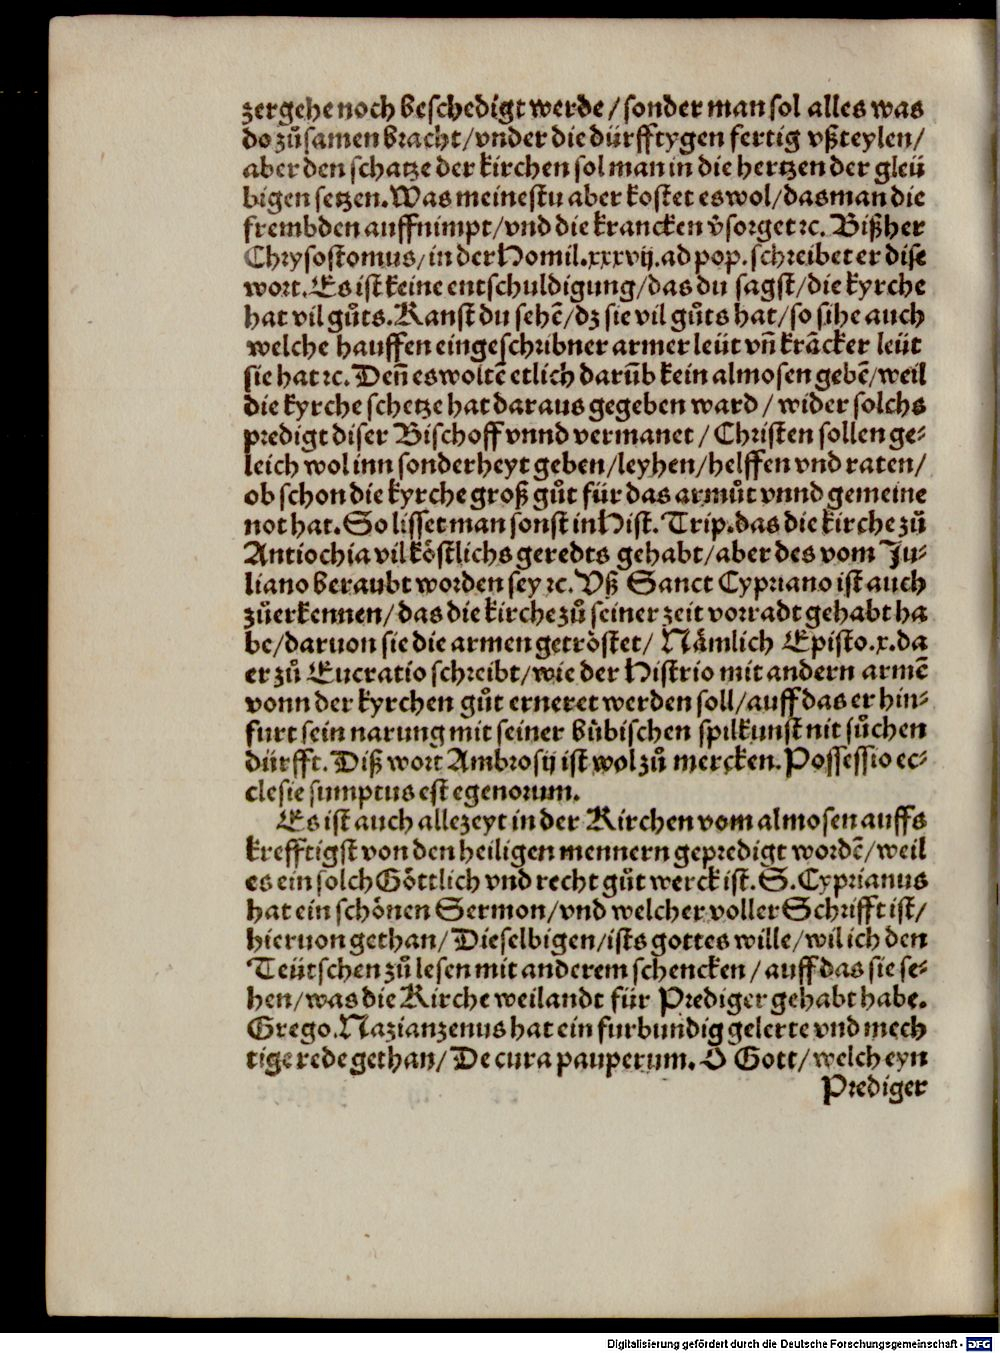 zergehe noch beschedigt werde / sonder man sol alles was
do zů samen bracht / vnder die dürfftygen fertig vßteylen /
aber den schatze der kirchen sol man in die hertzen der gleü
bigen setzen. Was meinestu aber kostet es wol / das man die
frembden auffnimpt / vnd die krancken v̉sorget ꝛc. Bißher
Chrysostomus / in der Homil. xxxvij. ad pop. schreibet er dise
wort. Es ist keine entschuldigung / das du sagst / die kyrche
hat vil gůts. Kanst du sehẽ / dz sie vil gůts hat / so sihe auch
welche hauffen eingeschribner armer leüt vñ krãcker leüt
sie hat ꝛc. Deñ es woltẽ etlich darũb kein almosen gebẽ / weil
die kyrche schetze hat daraus gegeben ward / wider solchs
predigt diser Bischoff vnnd vermanet / Christen sollen ge⸗
leich wol inn sonderheyt geben / leyhen / helffen vnd raten /
ob schon die kyrche groß gůt für das armůt vnnd gemeine
not hat. So lisset man sonst in Hist. Trip. das die kirche zů
Antiochia vil köstlichs geredts gehabt / aber des vom Ju⸗
liano beraubt worden sey ꝛc. Vß Sanct Cypriano ist auch
zůerkennen / das die kirche zů seiner zeit vorradt gehabt ha
be / daruon sie die armen getröstet / Nämlich Episto. x. da
er zů Eucratio schreibt / wie der Histrio mit andern armẽ
vonn der kyrchen gůt erneret werden soll / auff das er hin⸗
furt sein narung mit seiner bübischen spilkunst nit sůchen
dürfft. Diß wort Ambrosij ist wol zů mercken. Possessio ec⸗
clesie sumptus est egenorum.
Es ist auch allezeyt in der Kirchen vom almosen auffs
krefftigst von den heiligen mennern gepredigt wordẽ / weil
es ein solch Göttlich vnd recht gůt werck ist. S. Cyprianus
hat ein schönen Sermon / vnd welcher voller Schrifft ist /
hieruon gethan / Dieselbigen / ists gottes wille / wil ich den
Teütschen zů lesen mit anderem schencken / auff das sie se⸗
hen / was die Kirche weilandt für Prediger gehabt habe.
Grego. Nazianzenus hat ein furbundig gelerte vnd mech
tige rede gethan / De cura pauperum. O Gott / welch eyn
Prediger
Digitalisierung gefördert durch die Deutsche Forschungsgemeinschaft - DFG